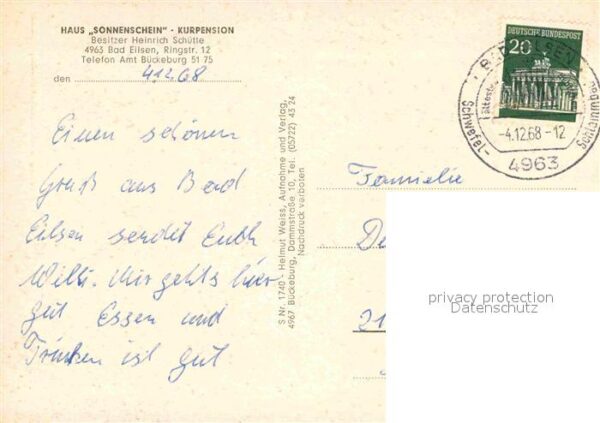 HAUS „SONNENSCHEIN" - KURPENSION
Besitzer Heinrich Schütte
4963 Bad Eilsen, Ringstr. 12
Telefon Amt Bückeburg 51 75
den 4.12.68
Einen schönen
Gruß aus Bad
Eilsen sendet Euch
Willi. Mir gehts hier
gut Essen und
Trinken ist gut
S Nr. 1740 - Helmut Weiss, Aufnahme und Verlag,
4967 Bückeburg, Dammstraße 10, Tel. (05722) 43 24
Nachdruck verboten
DEUTSCHE BUNDESPOST
20
BAD EILSEN
Schwefel-
-4.12.68-12
4963
Familie
De
21
privacy protection
Datenschutz